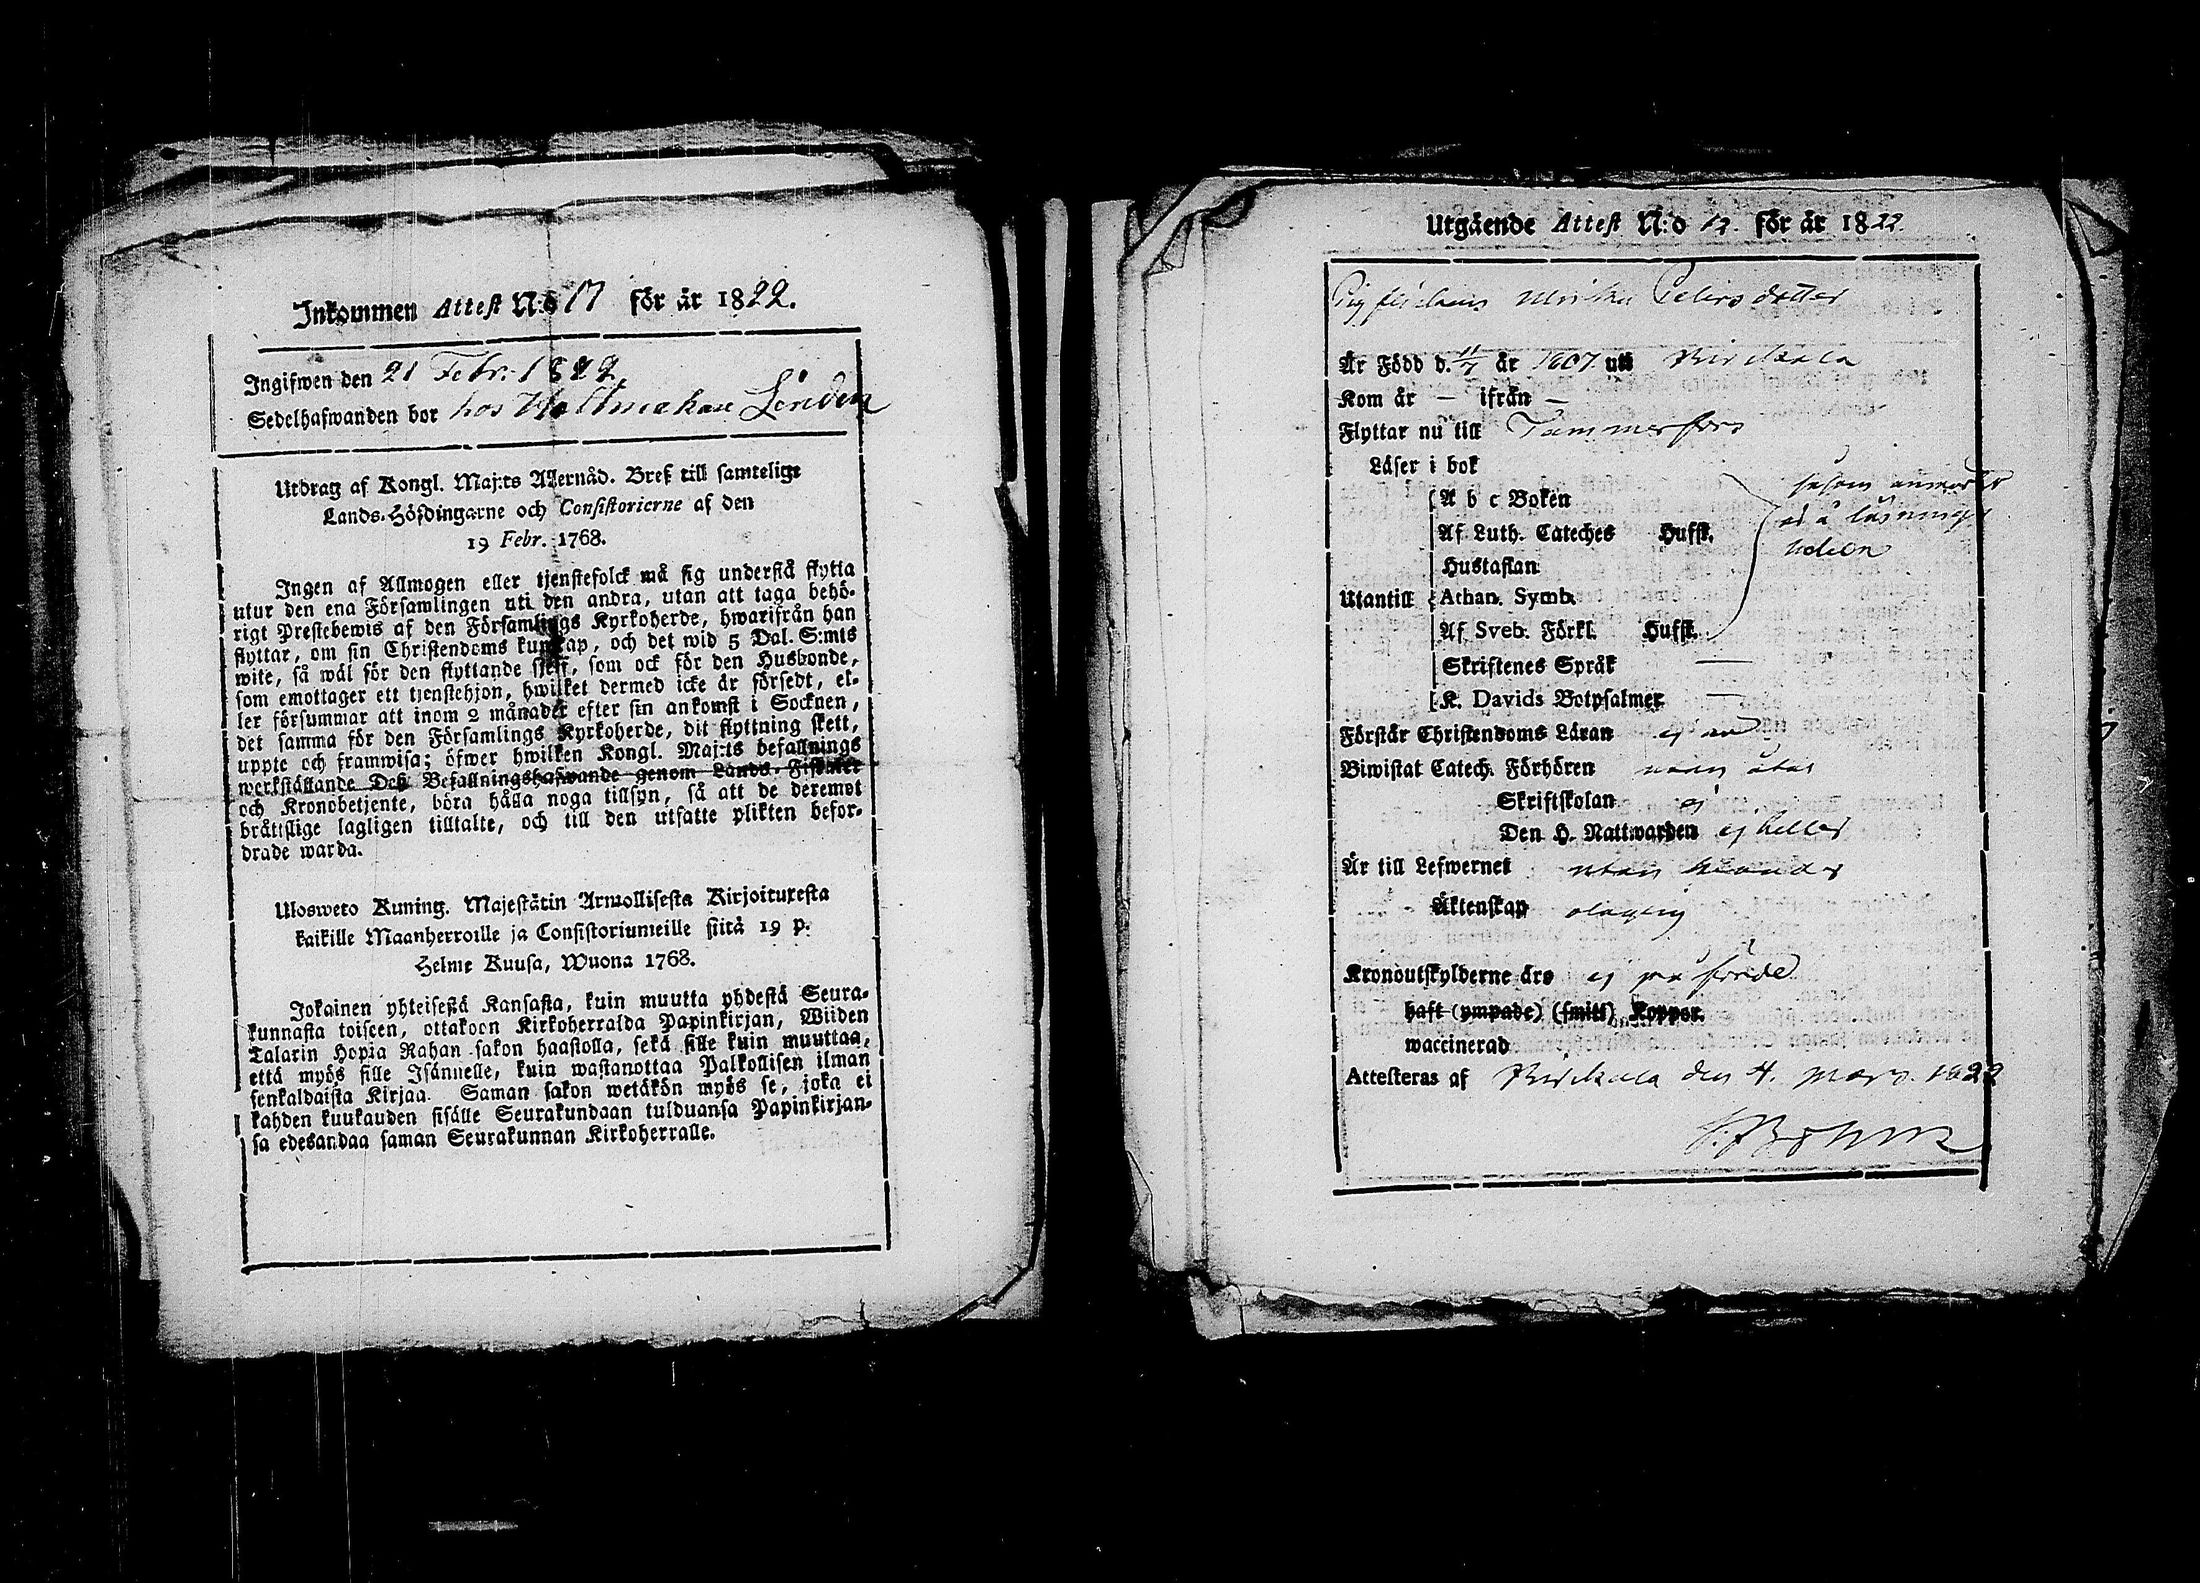 Inkommen Attest N:o 17 för år 1822.
Ingifwen den 21 Febr. 1822
Sedelhafwanden bor hos Hattmakare Lindén
Utdrag af Kongl. Maj:ts Allernåd. Bref till samtelige
Lands-Höfdingarne och Consistorierne af den
19 Febr. 1768.
Ingen af Allmogen eller tjenstefolck må sig understå flytta
utur den ena Församlingen uti den andra, utan att taga behö-
rigt Prestebewis af den Församlings Kyrkoherde, hwarifrån han
flyttar, om sin Christendoms kunskap, och det wid 5 Dal. S:mts
wite, så wäl för den flyttande sjelf, som ock för den Husbonde,
som emottager ett tjenstehjon, hwilket dermed icke är försedt, el-
ler försummar att inom 2 månader efter sin ankomst i Socknen,
det samma för den Församlings Kyrkoherde, dit flyttning skett,
uppte och framwisa; öfwer hwilken Kongl. Maj:ts befallnings
werkställande Deß Befallningshafwande genom Lands-Fiskaler
och Kronobetjente, böra hålla noga tillsyn, så att de deremot
bråttslige lagligen tilltalte, och till den utsatte plikten befor-
drade warda.
Ulosweto Kuning. Majestätin Armollisesta Kirjoituxesta
kaikille Maanherroille ja Consistoriumeille siitä 19 p.
Helme Kuusa, Wuona 1768.
Jokainen yhteisestä Kansasta, kuin muutta yhdestä Seura-
kunnasta toiseen, ottakoon Kirkoherralda Papinkirjan, Wiiden
Talarin Hopia Rahan sakon haastolla, sekä sille kuin muuttaa,
että myös sille Isännelle, kuin wastanottaa Palkollisen ilman
senkaldaista Kirjaa. Saman sakon wetäkön myös se, joka ei
kahden kuukauden sisälle Seurakundaan tulduansa Papinkirjan-
sa edesandaa saman Seurakunnan Kirkoherralle.
Utgående Attest N:o 12. för år 1822.
Pig flickan Ulrika Petersdotter
Är Född d. 11/7 år 1807 uti Birckala
Kom år — ifrån —
Flyttar nu till Tammerfors
Läser i bok
A b c Boken
Af Luth. Cateches Hufst.
Hustaflan
Utantill Athan. Symb.
Af Sveb. Förkl. Hufst.
Skriftenes Språk —
K. Davids Botpsalmer —
såsom
å läsnings
Förstår Christendoms Läran ej
Biwistat Catech. Förhören
Skriftskolan ej
Den H. Nattwarden ej heller
Är till Lefwernet utan
Äktenskap olaglig
Kronoutskylderne äro ej påförde
haft (ympade) (smitt) Koppor.
waccinerad
Attesteras af Birckala den 4. Mars. 1822